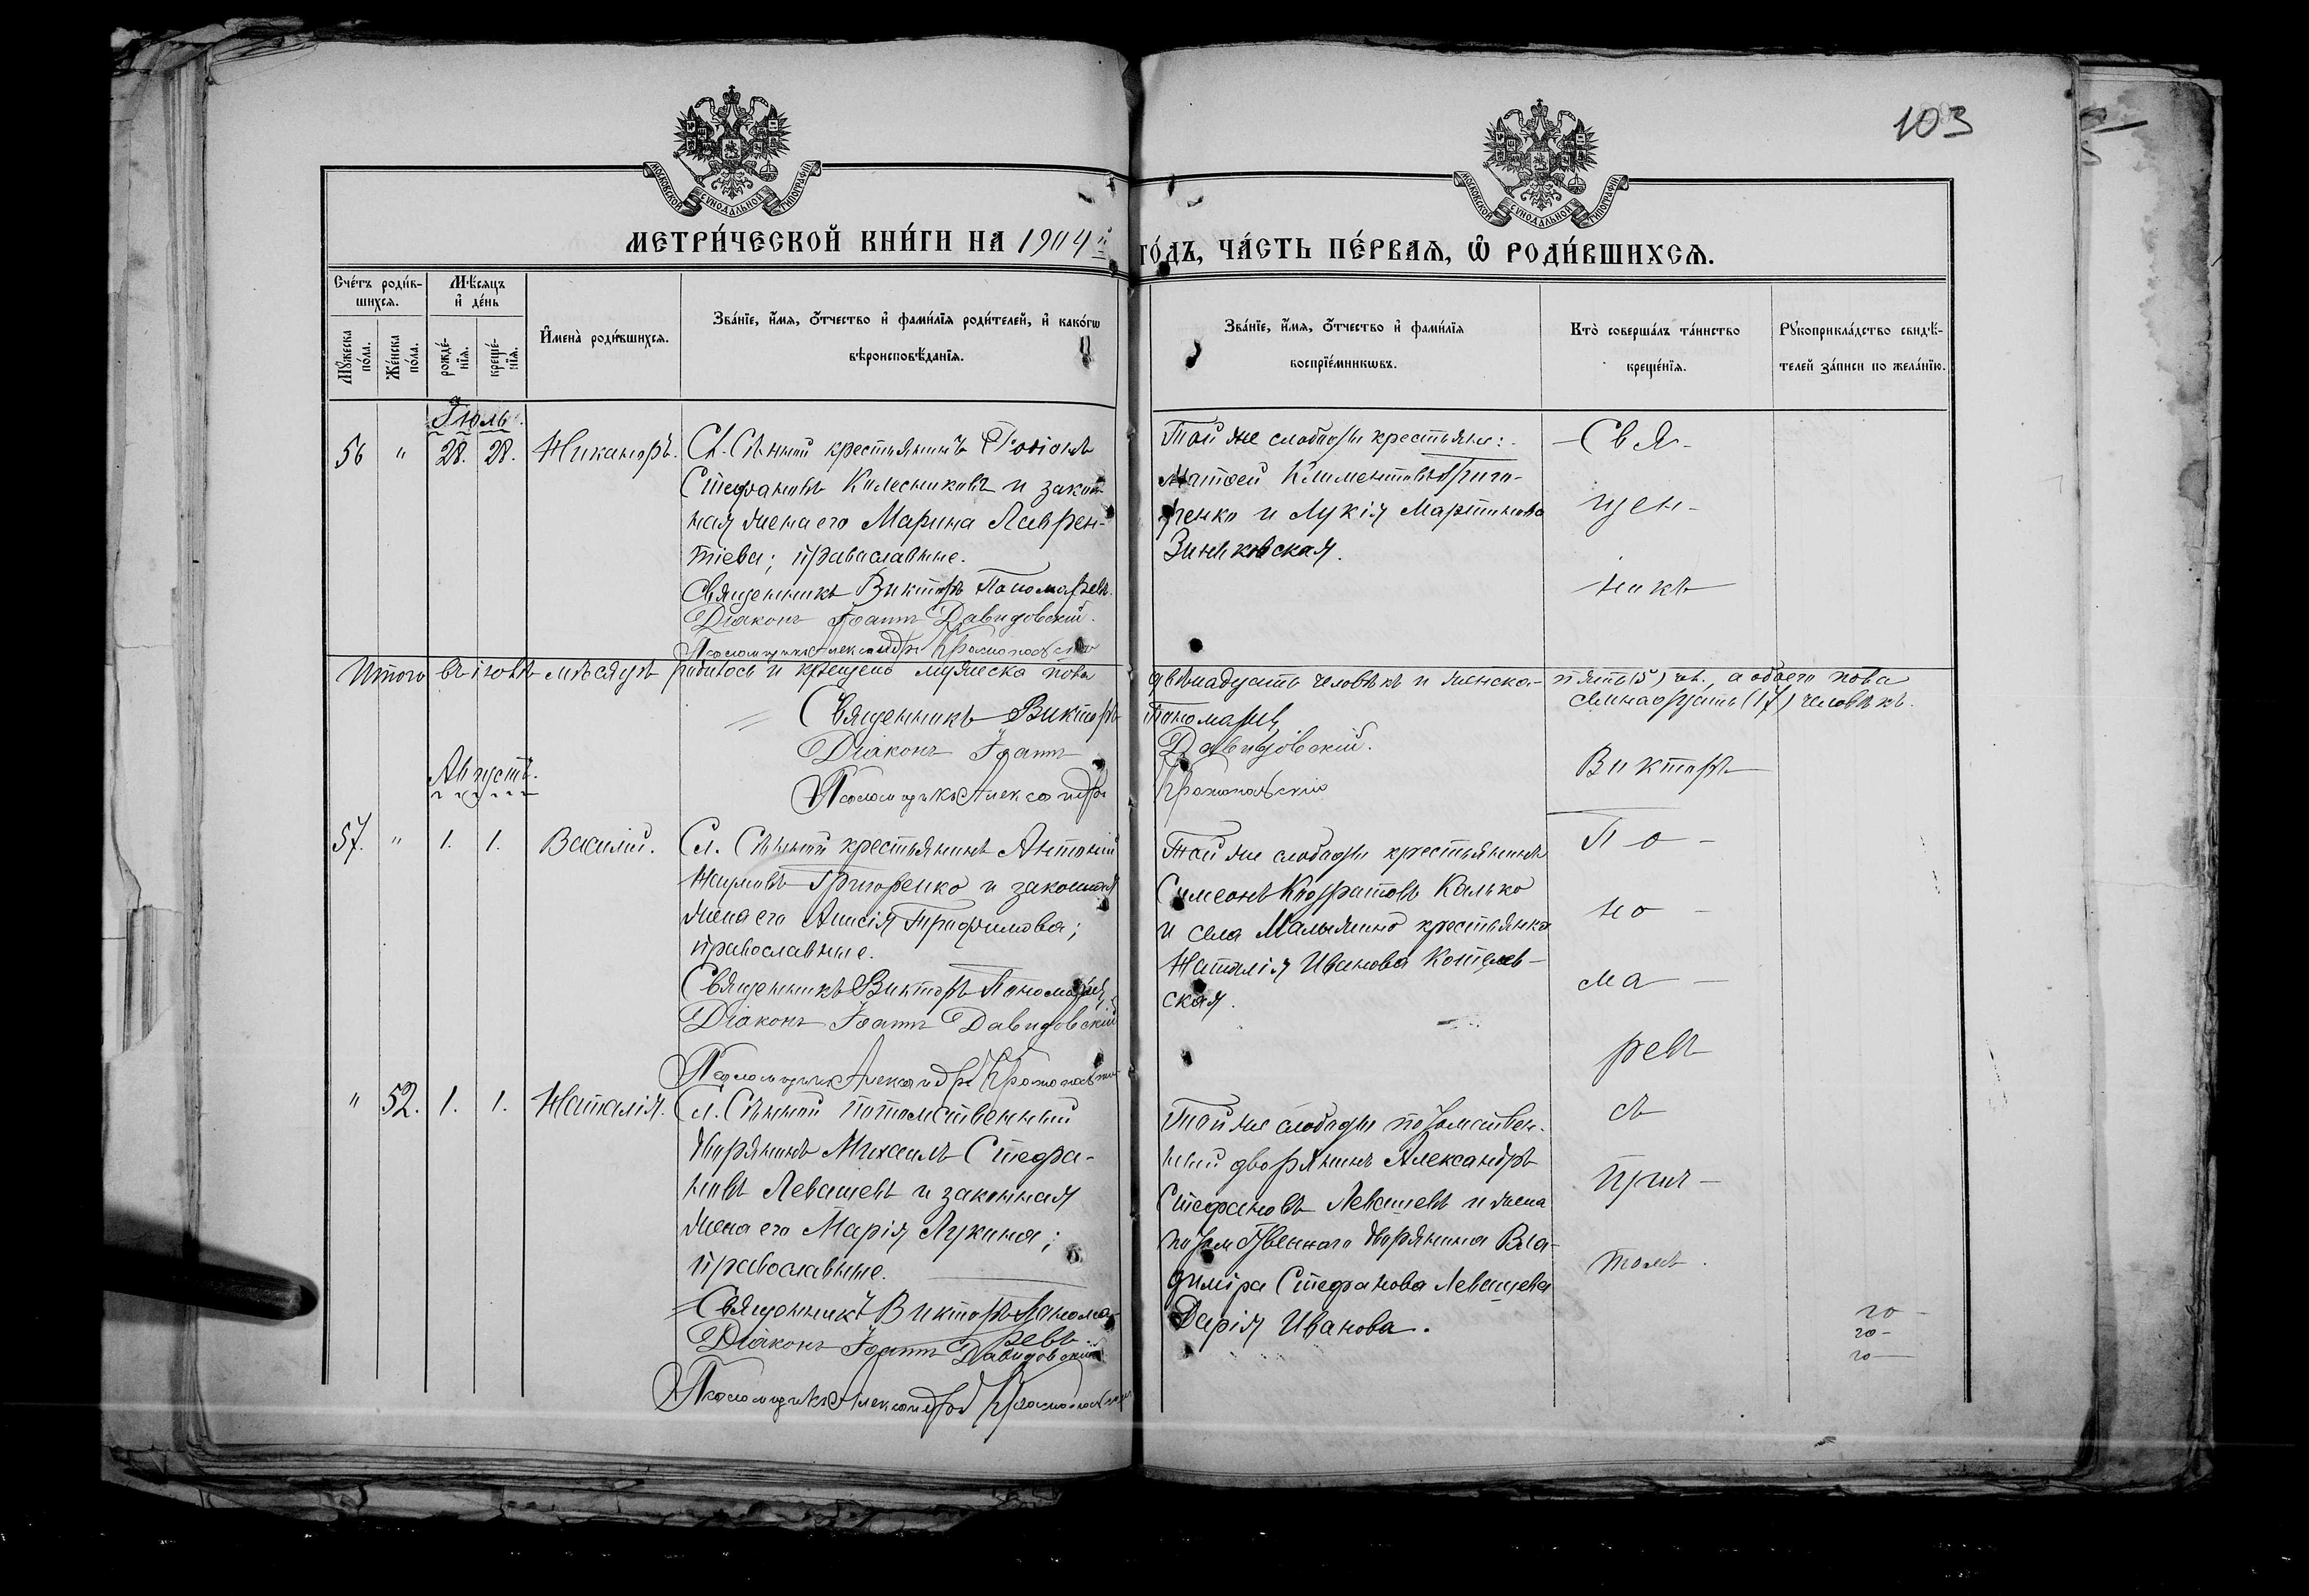 103
МОСКОВСКОЙ СУНОДАЛЬНОЙ ТИПОГРАФІИ
МОСКОВСКОЙ СУНОДАЛЬНОЙ ТИПОГРАФІИ
МЕТРИ́ЧЕСКОЙ КНИ́ГИ НА 1904 й
ГО́ДЪ, ЧА́СТЬ ПЕ́РВАЯ, Ѡ РОДИ́ВШИХСЯ.
Сче́тъ роди́в-
шихся.
Мꙋ́жеска по́ла.
Же́нска по́ла.
Мѣ́сяцъ
и҆ де́нь
рожде́-
нїя.
креще́-
нїя.
И҆мена̀ роди́вшихся.
Зва́нїе, и҆́мя, ѻ҆́тчество и҆ фами́лїя роди́телей, и҆ како́гѡ
вѣроисповѣ́данїя.
Зва́нїе, и҆́мя, ѻ҆́тчество и҆ фами́лїя
воспрїе́мникѡвъ.
Кто̀ соверша́лъ та́инство
креще́нїя.
Рꙋкоприкла́дство свидѣ́-
телей за́писи по жела́нїю.
Іюль.
56 " 28. 28. Никаноръ.
Сл. Сѣнной крестьянинъ Родіонъ
Стефановъ Колесниковъ и закон-
ная жена его Марина Лаврен-
тіева; православные.
Священникъ Викторъ Пономаревъ.
Діаконъ Іоаннъ Давидовскій.
Псаломщикъ Александръ
Той же слободы крестьяне:
Матѳей Климентовъ Григо-
ренко и Лукія Мартинова
Зиньковская.
Свя-
щен-
никъ
Итого въ іюлѣ мѣсяцѣ родилось и крещено мужеска пола
двѣнадцать человѣкъ и женска- пять (5) чел., а обоего пола
семнадцать (17) человѣкъ.
Священникъ Викторъ Пономаревъ
Діаконъ Іоаннъ Давидовскій.
Псаломщикъ Александръ
Викторъ
Августъ.
57. " 1. 1. Василій.
Сл. Сѣнной крестьянинъ Антоній
Наумовъ Григоренко и законная
жена его Анисія Трофимова;
православные.
Священникъ Викторъ Пономаревъ
Діаконъ Іоаннъ Давидовскій
Псаломщикъ Александръ
Той же слободы крестьянинъ
Симеонъ Кодратовъ Калько
и села Малыжино крестьянка
Наталія Иванова Котелев-
ская.
По-
но-
ма-
ревъ
" 52. 1. 1. Наталія.
Сл. Сѣнной потомственный
дворянинъ Михаилъ Стефа-
новъ Левашевъ и законная
жена его Марія Лукина;
православные.
Священникъ Викторъ Понома-
ревъ.
Діаконъ Іоаннъ Давидовскій
Псаломщикъ Александръ
Той же слободы потомствен-
ный дворянинъ Александръ
Стефановъ Левашевъ и жена
потомственнаго дворянина Вла-
диміра Стефанова Левашева
Дарія Иванова.
съ
прич-
томъ.
20 -
20 -
20 -